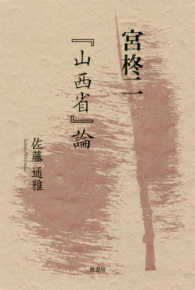 宮柊二
『山西省』論
佐藤通雅